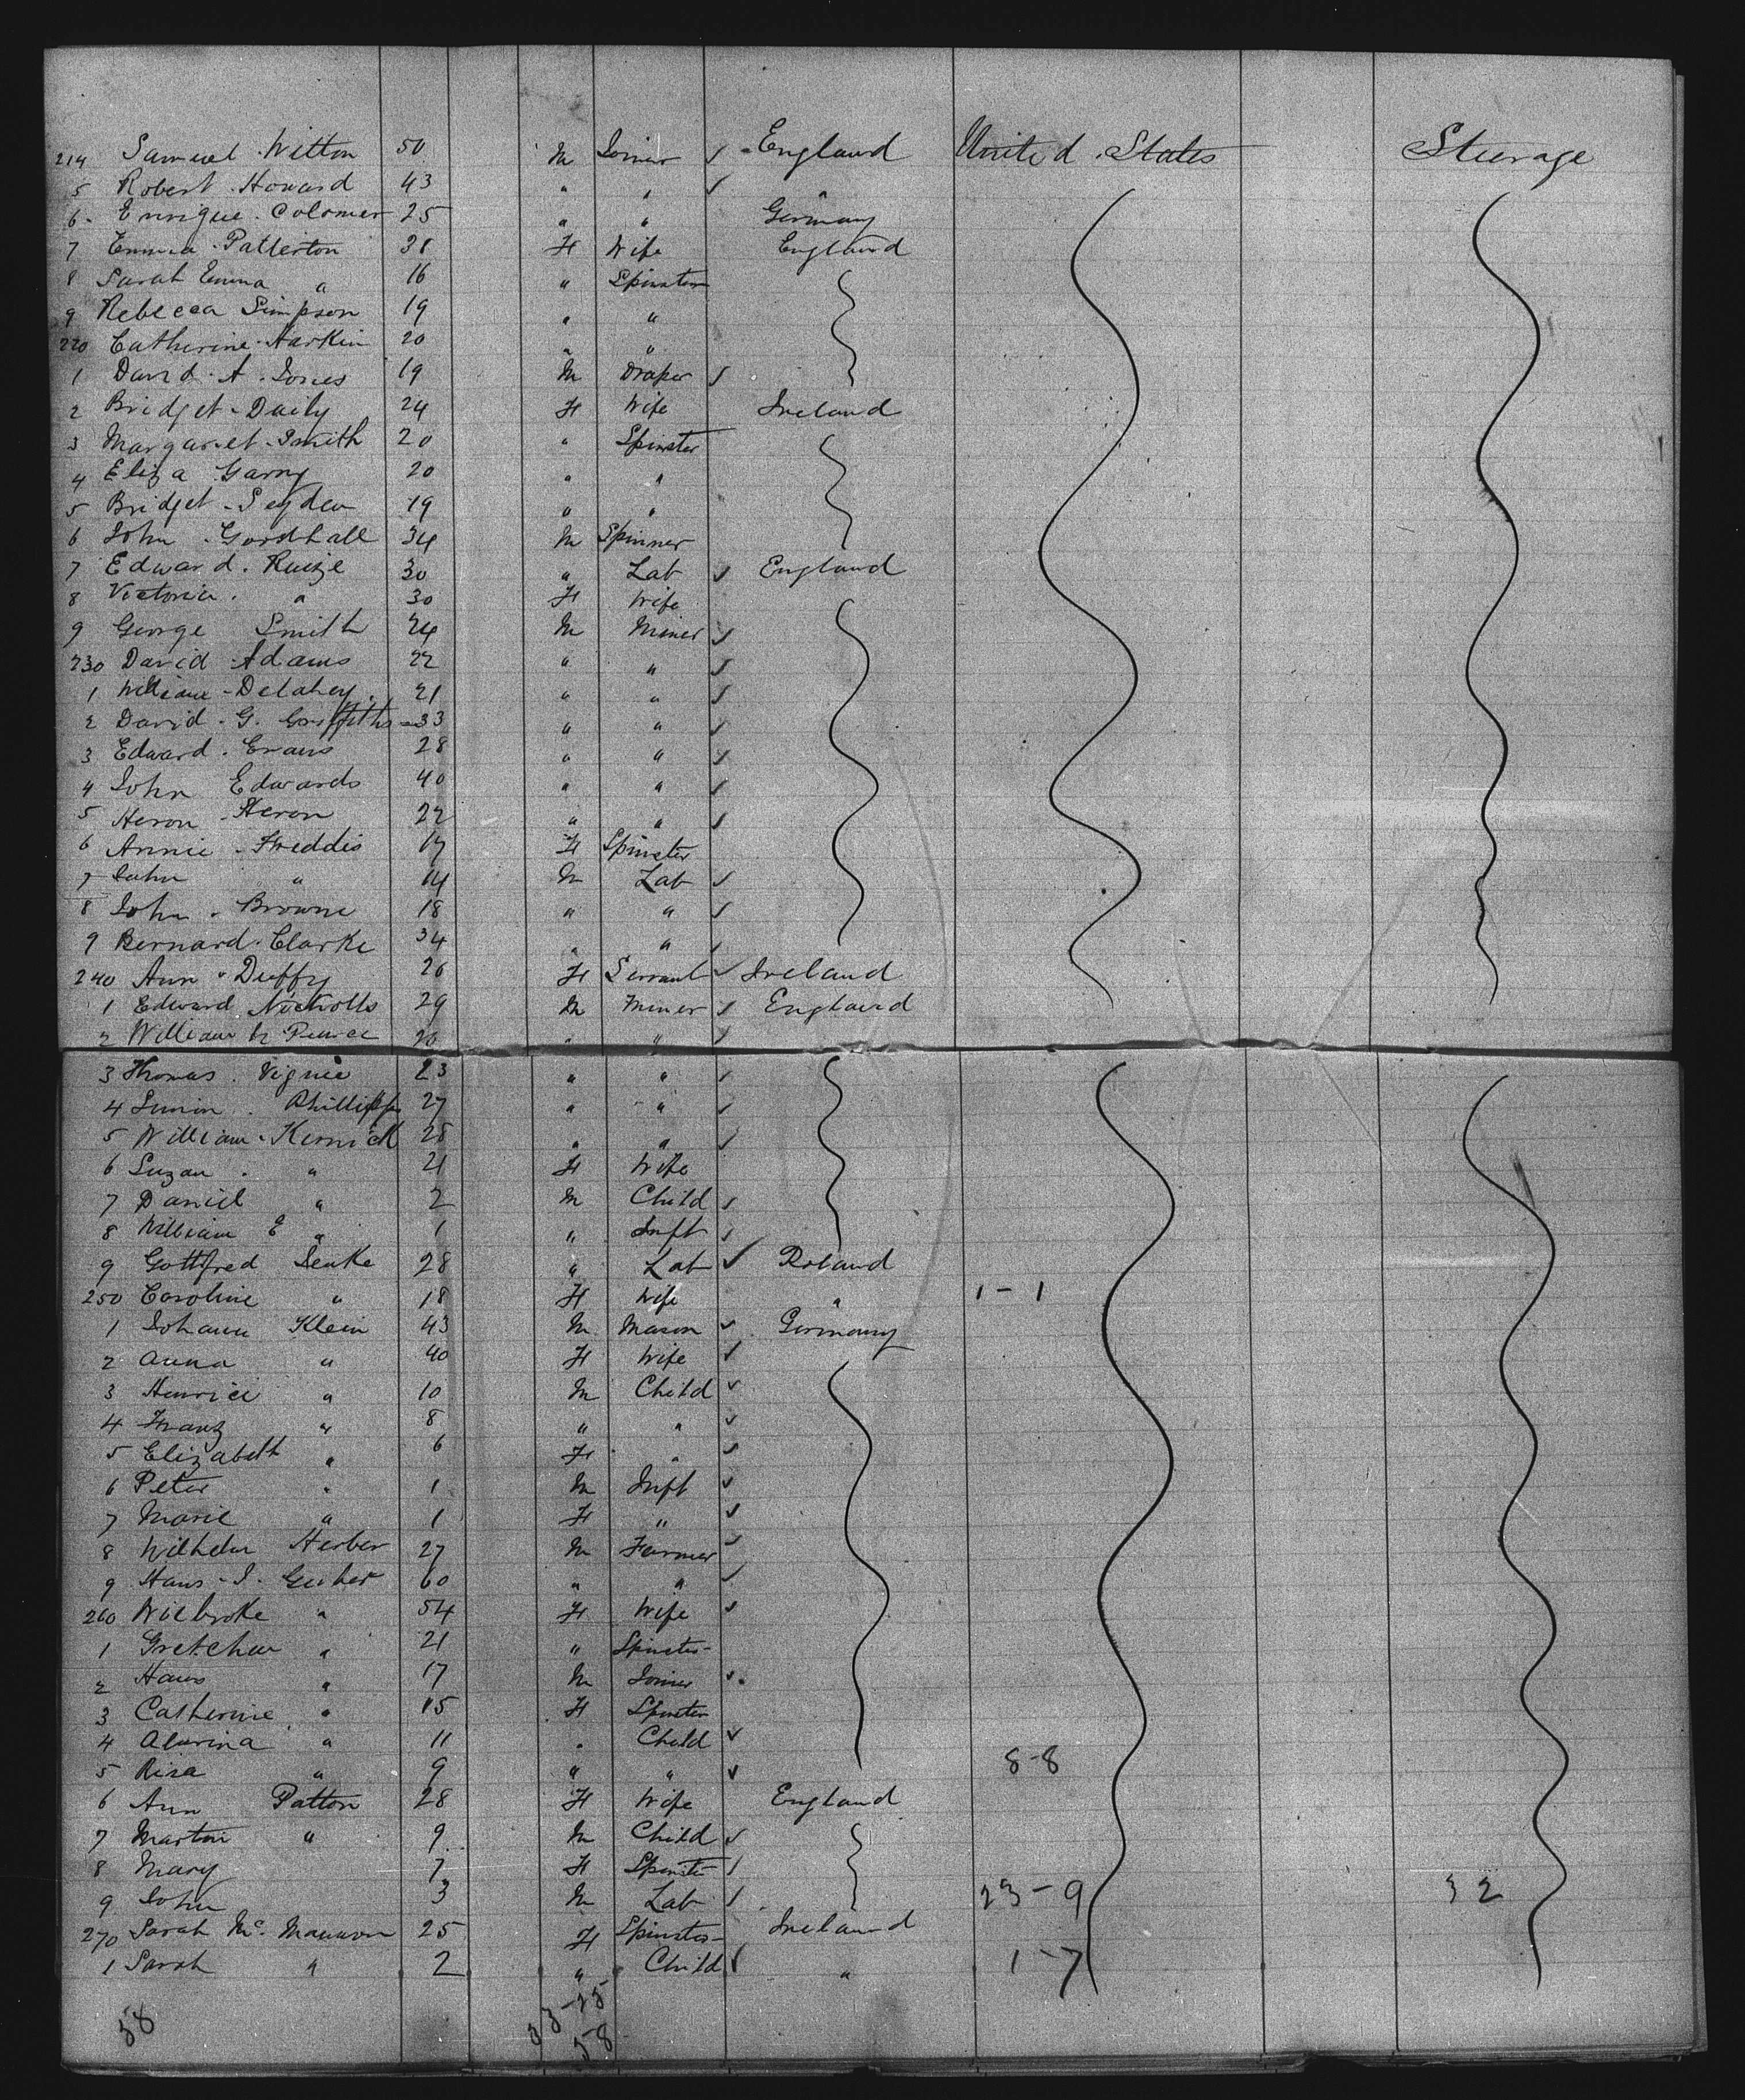 214 Samuel Witton 50 M Joiner ✓ England United States Steerage
5 Robert Howard 43 " " ✓ "
6 Enrique Colomer 25 " " Germany
7 Emma Patterton 38 F Wife England
8 Sarah Emma " 16 " Spinster
9 Rebecca Simpson 19 " "
220 Catherine Harkin 20 " "
1 David A. Jones 19 M Draper ✓
2 Bridget Daily 24 F Wife Ireland
3 Margaret Smith 20 " Spinster
4 Eliza Garry 20 " "
5 Bridget 19 " "
6 John Gorsthall 34 M Spinner
7 Edward 30 " Lab ✓ England
8 Victoria " 30 F Wife
9 George Smith 24 M Miner ✓
230 David Adams 22 " " ✓
1 William Delahey 21 " " ✓
2 David G. Griffiths 33 " " ✓
3 Edward Evans 28 " " ✓
4 John Edwards 40 " " ✓
5 Heron Heron 22 " " ✓
6 Annie Freddis 17 F Spinster
7 John " 14 M Lab ✓
8 John Browne 18 " " ✓
9 Bernard Clarke 34 " " ✓
240 Ann Duffy 26 F Servant ✓ Ireland
1 Edward Nicholls 29 M Miner ✓ England
2 William H Pearce 20 " " ✓
3 Thomas Vignie 23 " " ✓
4 Simon Phillipps 27 " " ✓
5 William Kernick 25 " " ✓
6 Suzan " 21 F Wife
7 Daniel " 2 M Child ✓
8 William E " 1 " Inft ✓
9 Gottfred Lenke 28 " Lab ✓ Poland
250 Caroline " 18 F Wife " 1-1
1 Johann Klein 43 M Mason ✓ Germany
2 Anna " 40 F Wife ✓
3 Henrici " 10 M Child ✓
4 Franz " 8 " " ✓
5 Elizabeth " 6 F " ✓
6 Peter " 1 M Inft ✓
7 Marie " 1 F " ✓
8 Wilhelm Herber 27 M Farmer ✓
9 Hans J. 60 " " ✓
260 Wiebroke " 54 F Wife ✓
1 Gretchen " 21 " Spinster
2 Hans " 17 M Joiner ✓
3 Catherine " 15 F Spinster
4 " 11 " Child ✓
5 " 9 " " ✓ 8-8
6 Ann Patton 28 F Wife England
7 Martin " 9 M Child ✓
8 Mary 7 F Spinster ✓
9 John 3 M Lab ✓ 23-9 32
270 Sarah Mc. Mannon 25 F Spinster Ireland
1 Sarah " 2 " Child ✓ " 1-7
58 33-25
58